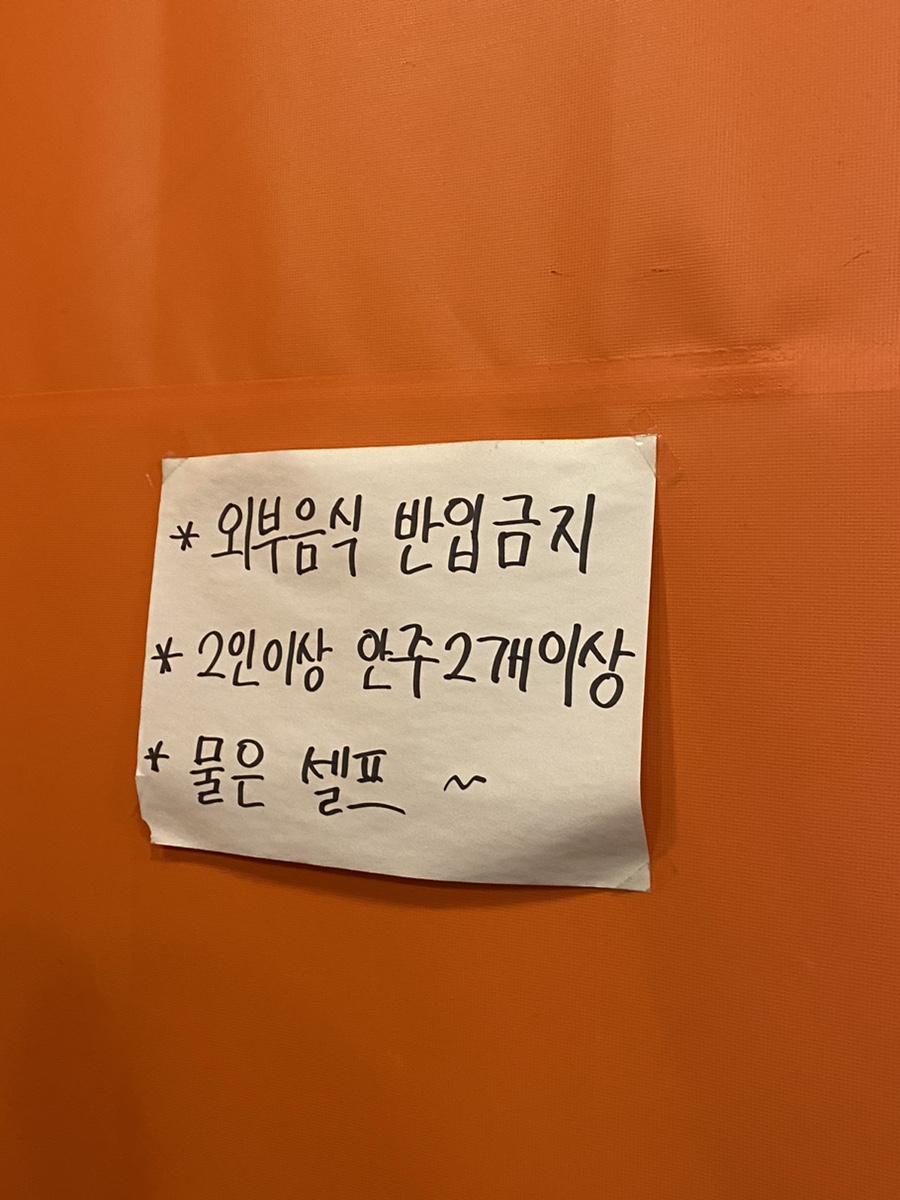 * 외부음식 반입금지
* 2인이상 안주2개이상
* 물은 셀프 ~